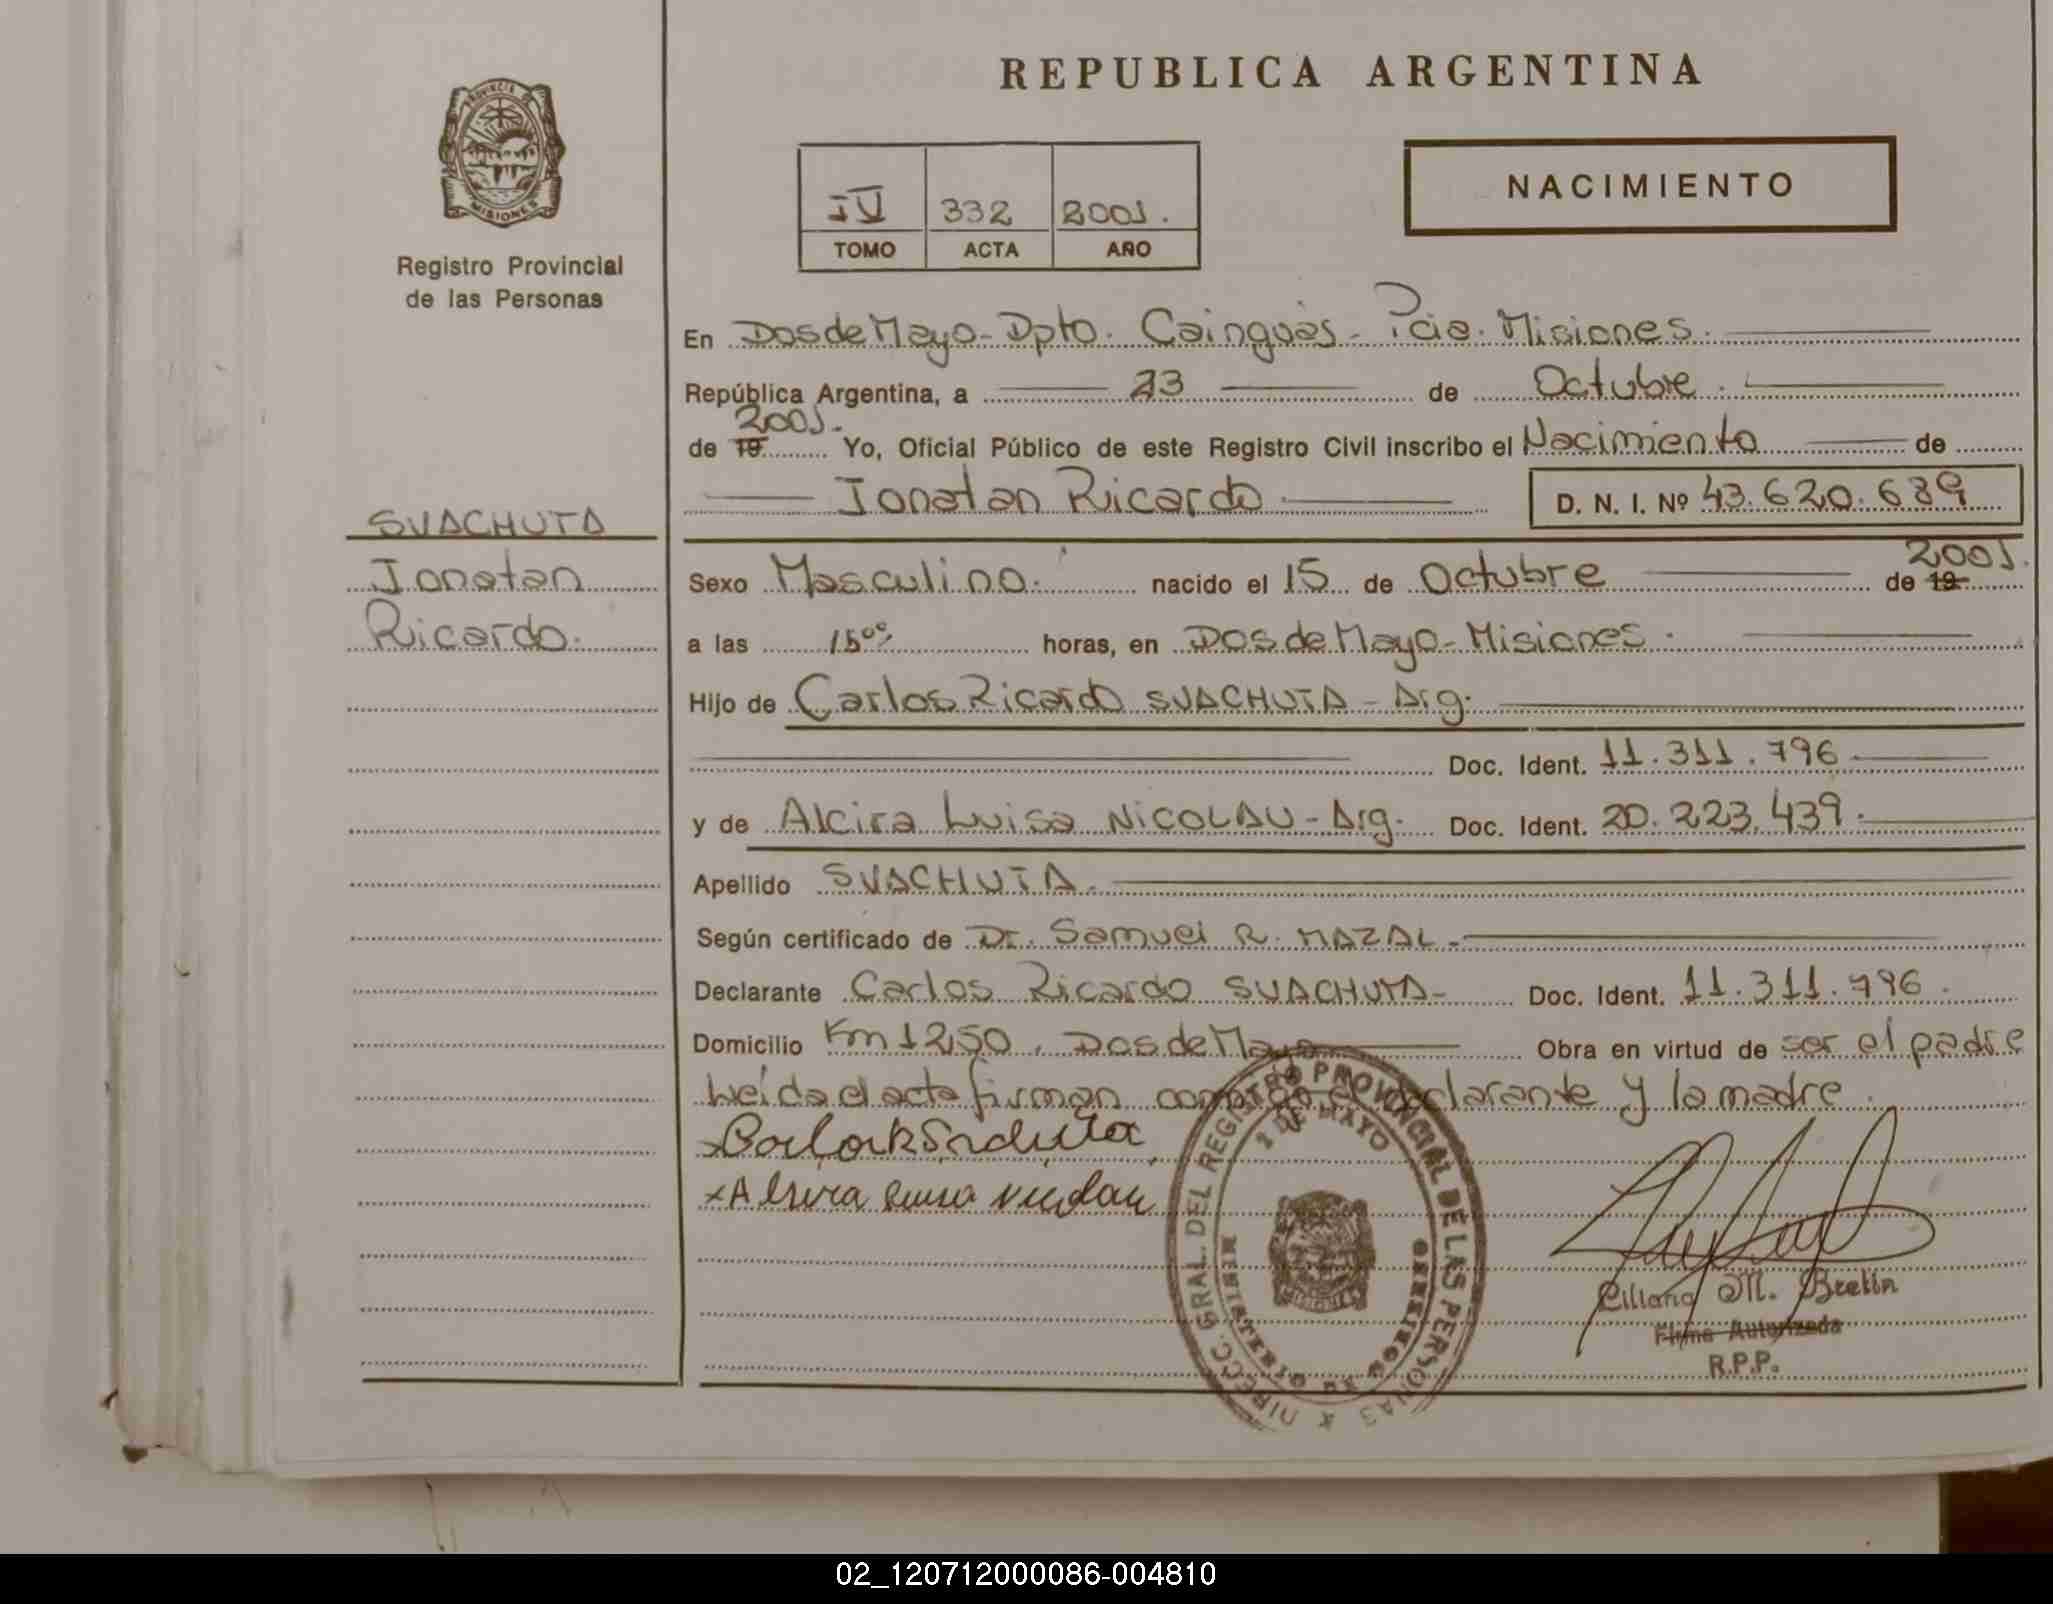 REPUBLICA ARGENTINA
PROVINCIA DE
MISIONES
Registro Provincial
de las Personas
IV 332 2001.
TOMO ACTA AÑO
NACIMIENTO
En Dos de Mayo - Dpto. Cainguás - Pcia. Misiones.
República Argentina, a 23 de Octubre.
2001.
de 19 Yo, Oficial Público de este Registro Civil inscribo el Nacimiento de
Jonatan Ricardo D. N. I. Nº 43.620.689
SVACHUTA
Jonatan
Ricardo.
Sexo Masculino. nacido el 15 de Octubre de 19 2001.
a las 15⁰⁰ horas, en Dos de Mayo - Misiones.
Hijo de Carlos Ricardo SVACHUTA - Arg.
Doc. Ident. 11.311.796
y de Alcira Luisa NICOLAU - Arg. Doc. Ident. 20.223.439.
Apellido SVACHUTA.
Según certificado de Dr. Samuel R. MAZAL.
Declarante Carlos Ricardo SVACHUTA - Doc. Ident. 11.311.796.
Domicilio Km 1250, Dos de Mayo Obra en virtud de ser el padre
Leída el acta firman conmigo el declarante y la madre.
x Alcira Luisa Nicolau
DIRECC. GRAL. DEL REGISTRO PROVINCIAL DE LAS PERSONAS
2 DE MAYO
MINISTERIO DE GOBIERNO
MISIONES
Liliana M. Bretin
Firma Autorizada
R.P.P.
02_120712000086-004810